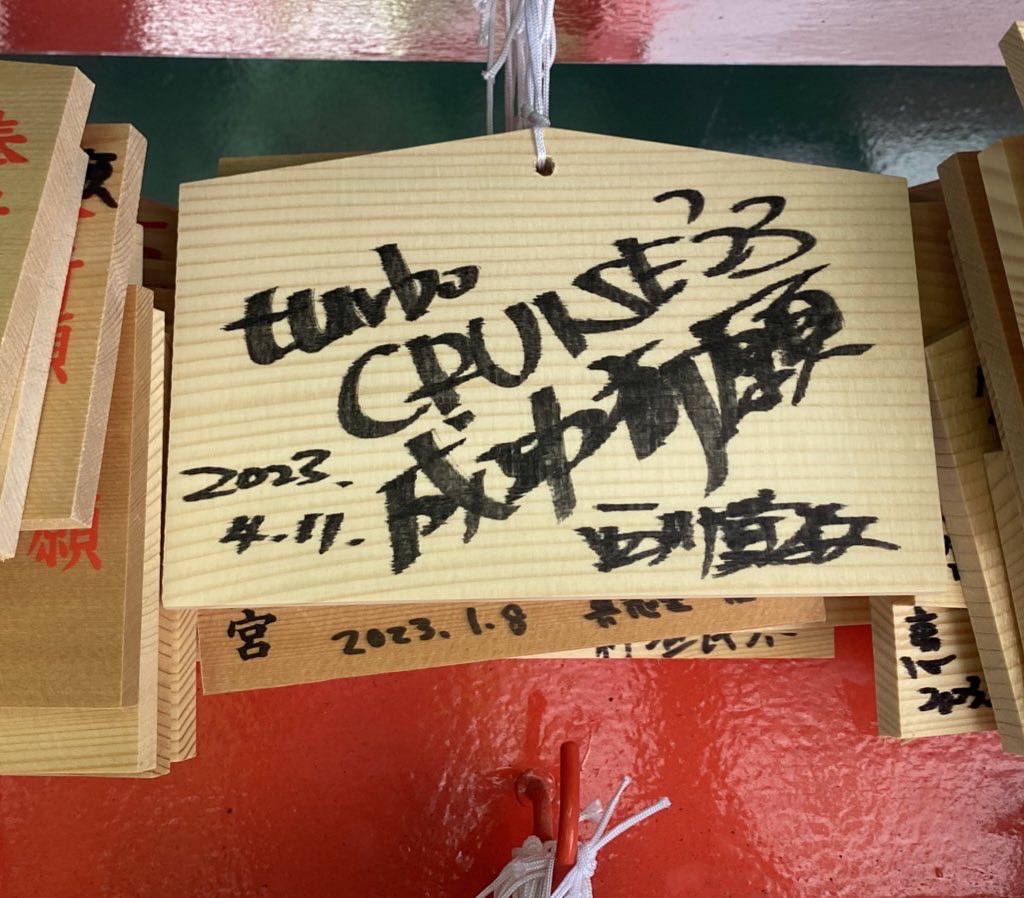 turbo
CRUISE'23
成功祈願
2023.
4.11.
西川貴教
宮 2023.1.8
願